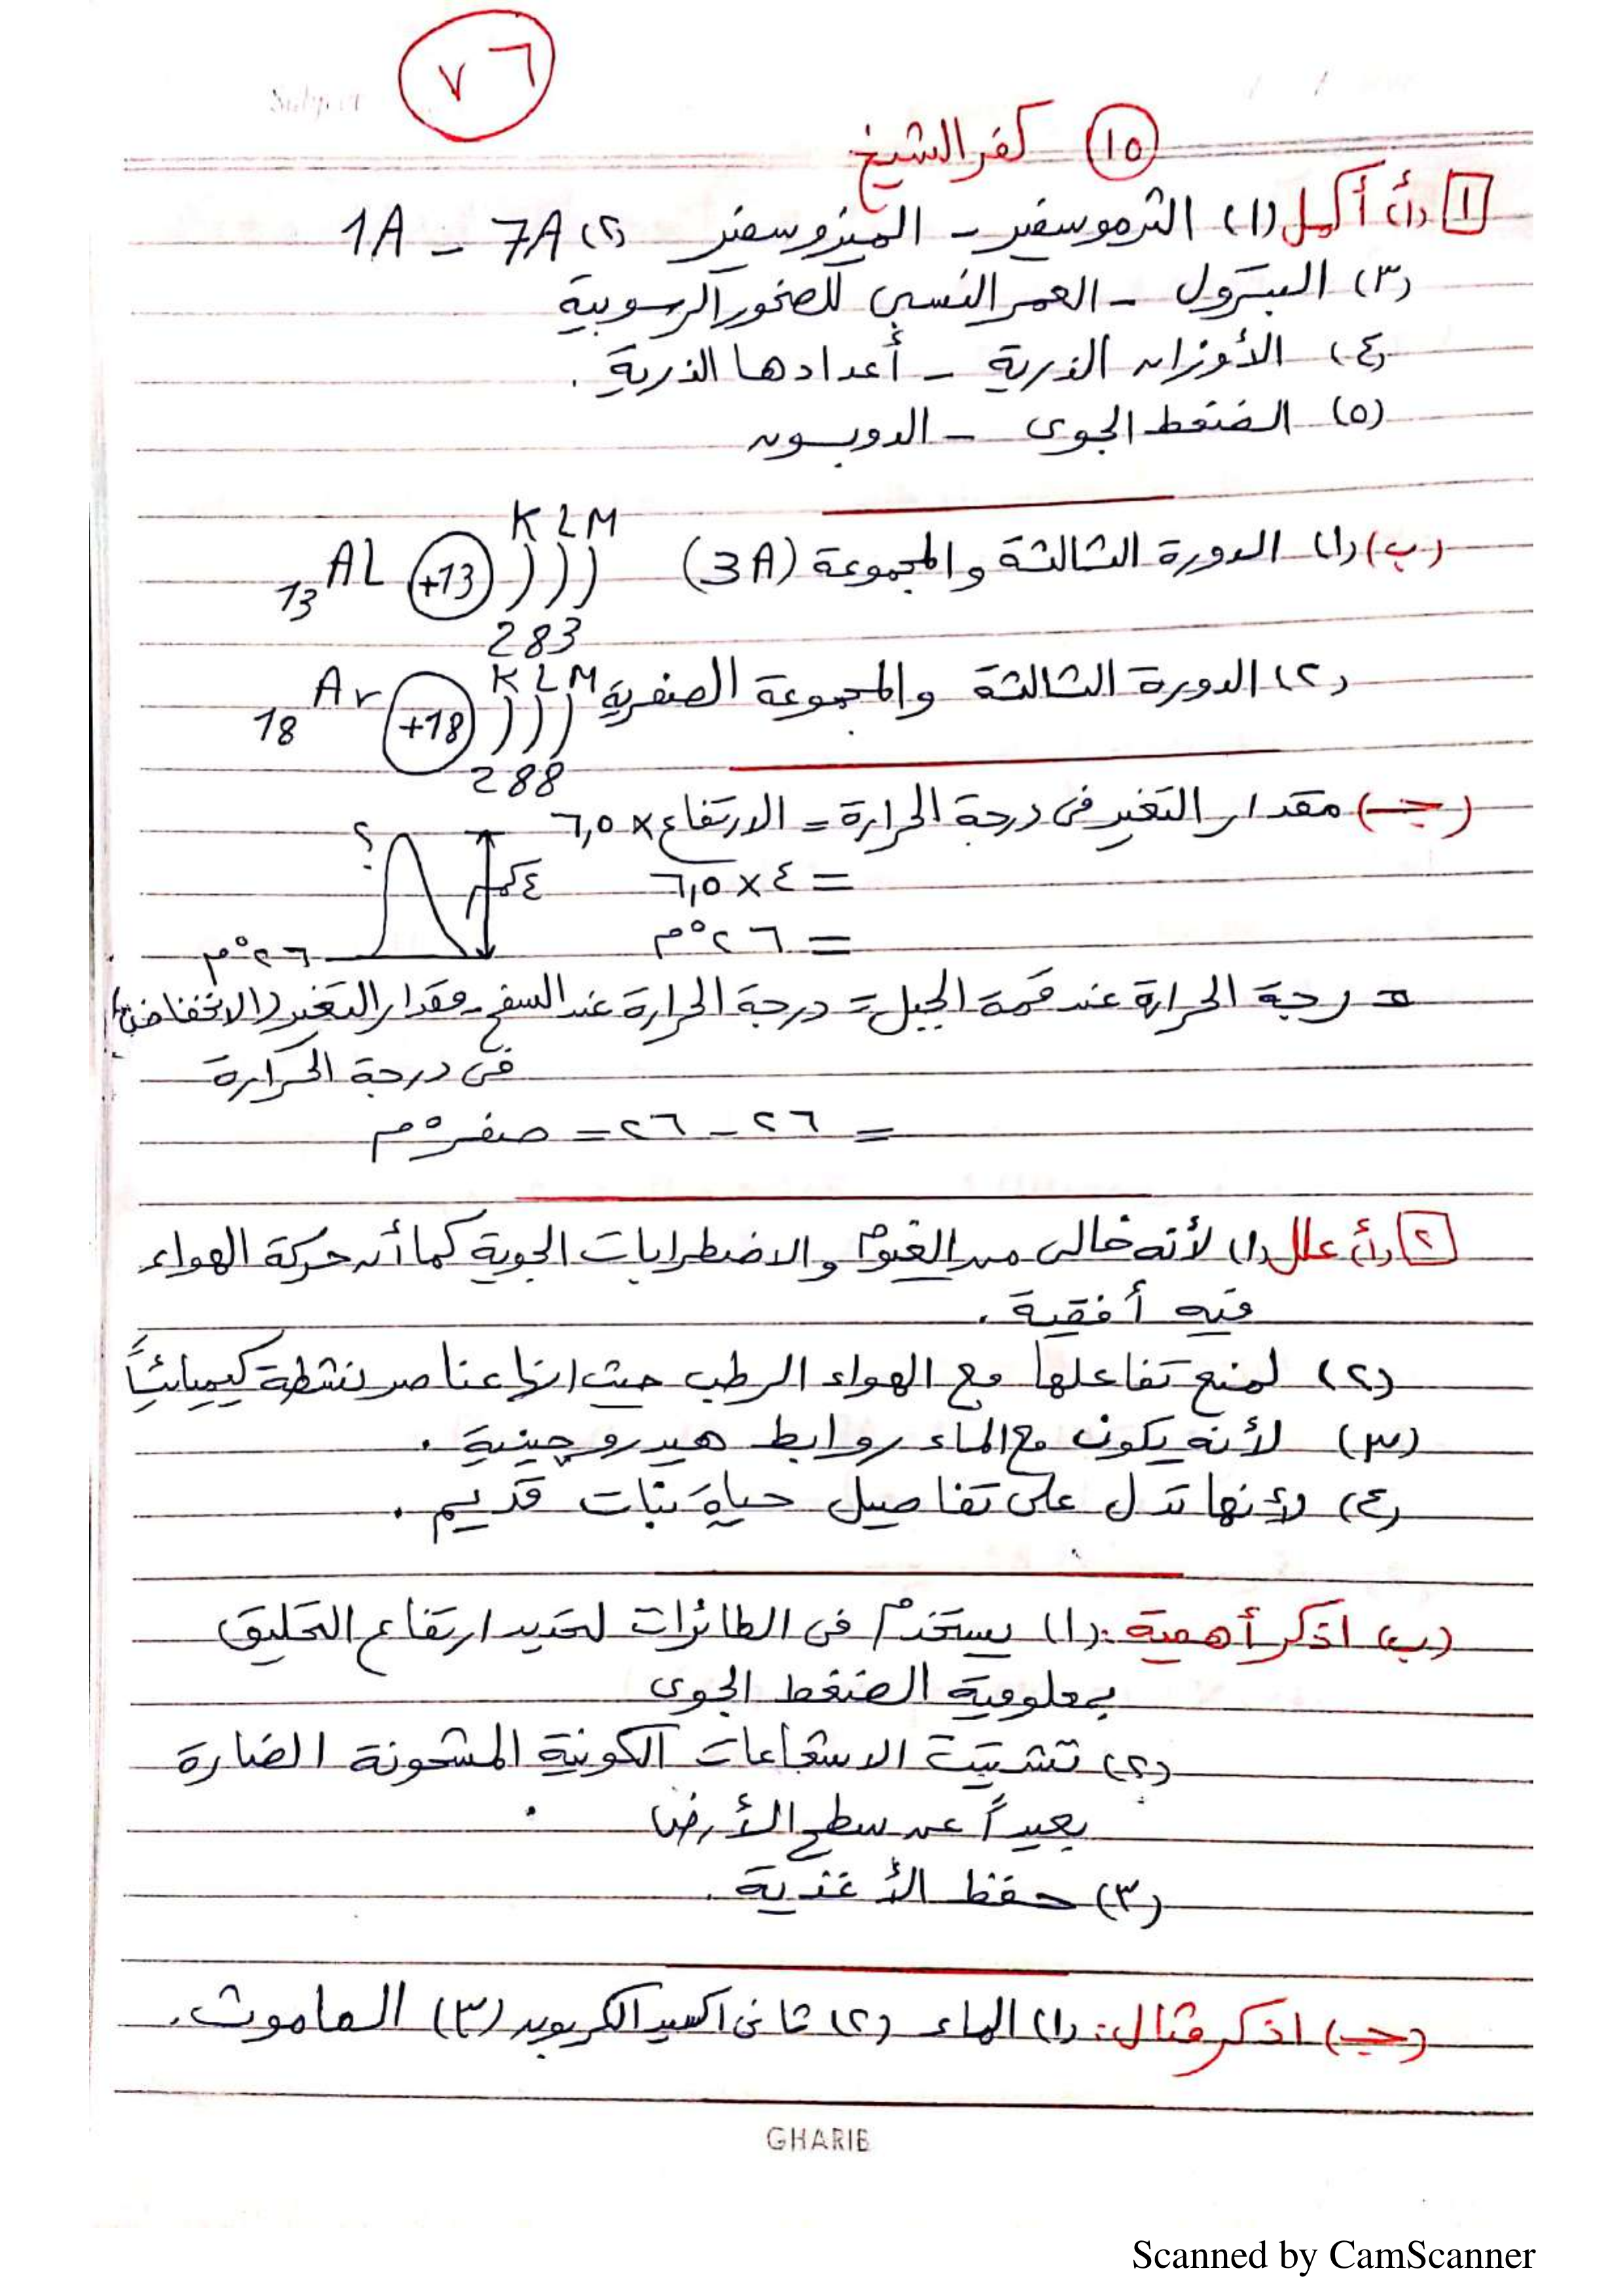 ٧٦
Subject
١٥ كفر الشيخ
١ (أ) أكمل (١) الثرموسفير - الميزوسفير (٢) 7A - 1A
(٣) البترول - العمر النسبى للصخور الرسوبية
(٤) الأوزان الذرية - أعدادها الذرية .
(٥) الضغط الجوى - الدوبسون
(ب) (١) الدورة الثالثة والمجموعة (3A) 13 Al +13 K L M
2 8 3
(٢) الدورة الثالثة والمجموعة الصفرية 18 Ar +18 K L M
2 8 8
(جـ) مقدار التغير فى درجة الحرارة = الارتفاع × ٦,٥
= ٤ × ٦,٥
٤كم
؟
= ٢٦°م
٢٦°م
درجة الحرارة عند قمة الجبل = درجة الحرارة عند السفح - مقدار التغير (الانخفاض)
فى درجة الحرارة
= ٢٦ - ٢٦ = صفر°م
٢ (أ) علل (١) لأنه خالى من الغيوم والاضطرابات الجوية كما أن حركة الهواء
فيه أفقية .
(٢) لمنع تفاعلها مع الهواء الرطب حيث انها عناصر نشطة كيميائياً
(٣) لأنه يكون مع الماء روابط هيدروجينية .
(٤) لأنها تدل على تفاصيل حياة نبات قديم .
(ب) اذكر أهمية : (١) يستخدم فى الطائرات لتحديد ارتفاع التحليق
بمعلومية الضغط الجوى
(٢) تشتيت الاشعاعات الكونية المشحونة الضارة
بعيداً عن سطح الأرض .
(٣) حفظ الأغذية .
(جـ) اذكر مثال : (١) الماء (٢) ثانى اكسيد الكربون (٣) الماموث .
GHARIB
Scanned by CamScanner